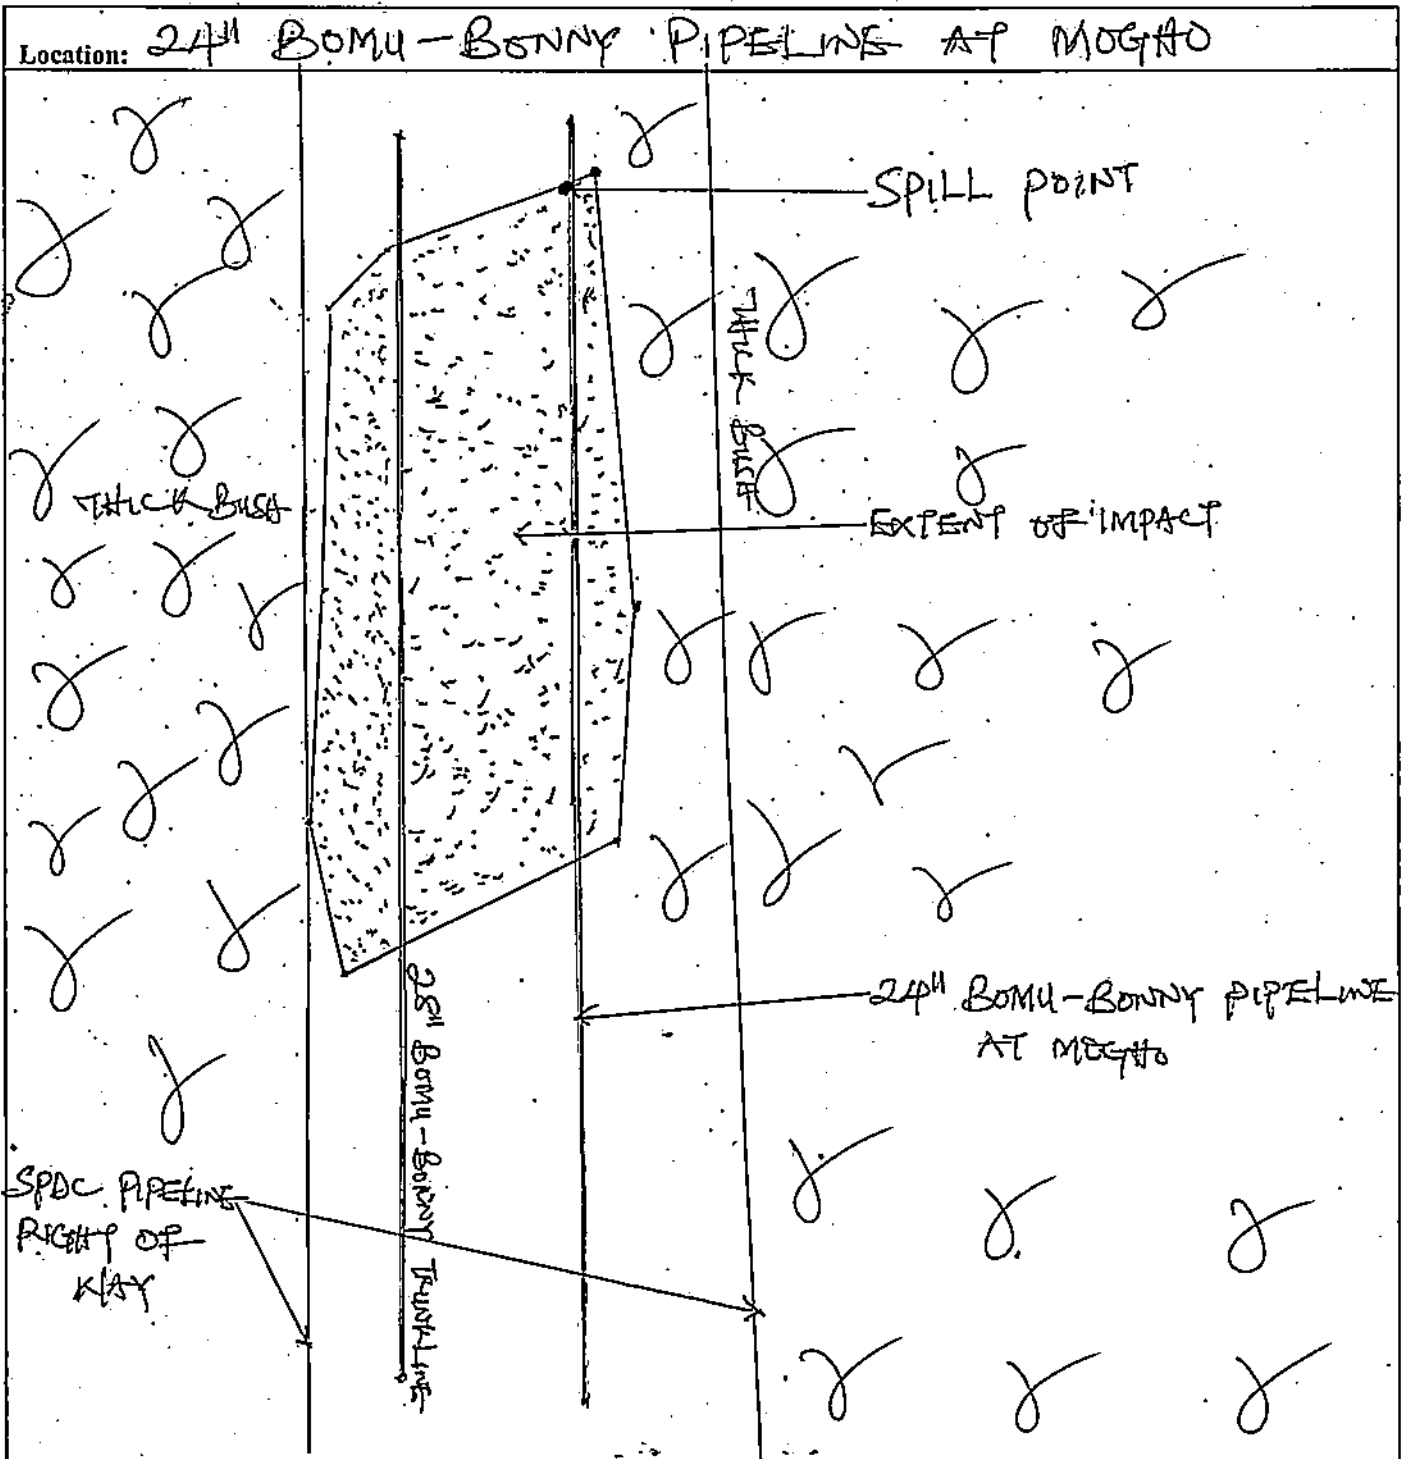 Location: 24" BOMU-BONNY PIPELINE AT MOGHO
SPILL POINT
THICK BUSH
THICK BUSH
EXTENT OF IMPACT
24" BOMU-BONNY PIPELINE
AT MOGHO
28" BOMU-BONNY TRUNKLINE
SPDC PIPELINE
RIGHT OF
WAY